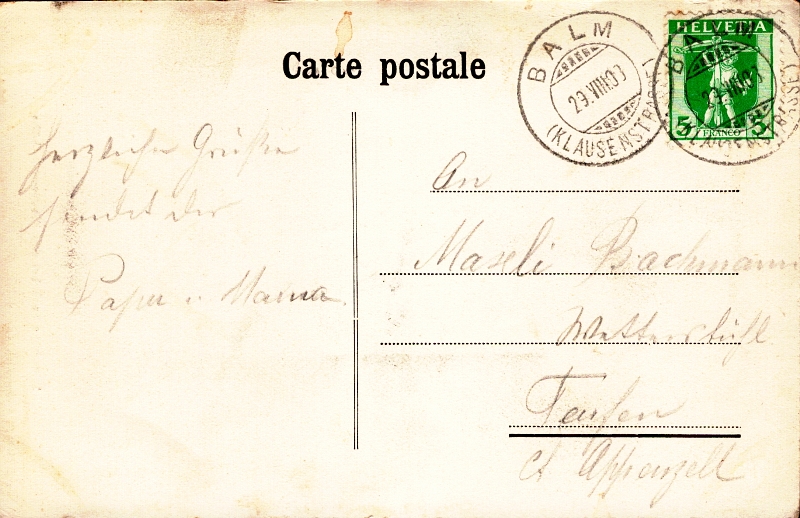 Carte postale
BALM
29.VIII.09
(KLAUSENSTRASSE)
HELVETIA
5 FRANCO 5
BALM
29.VIII.09
(KLAUSENSTRASSE)
Herzliche Grüße
sendet dir
Papa u. Mama.
An
Maseli Bachmann
Teufen
Ct. Appenzell